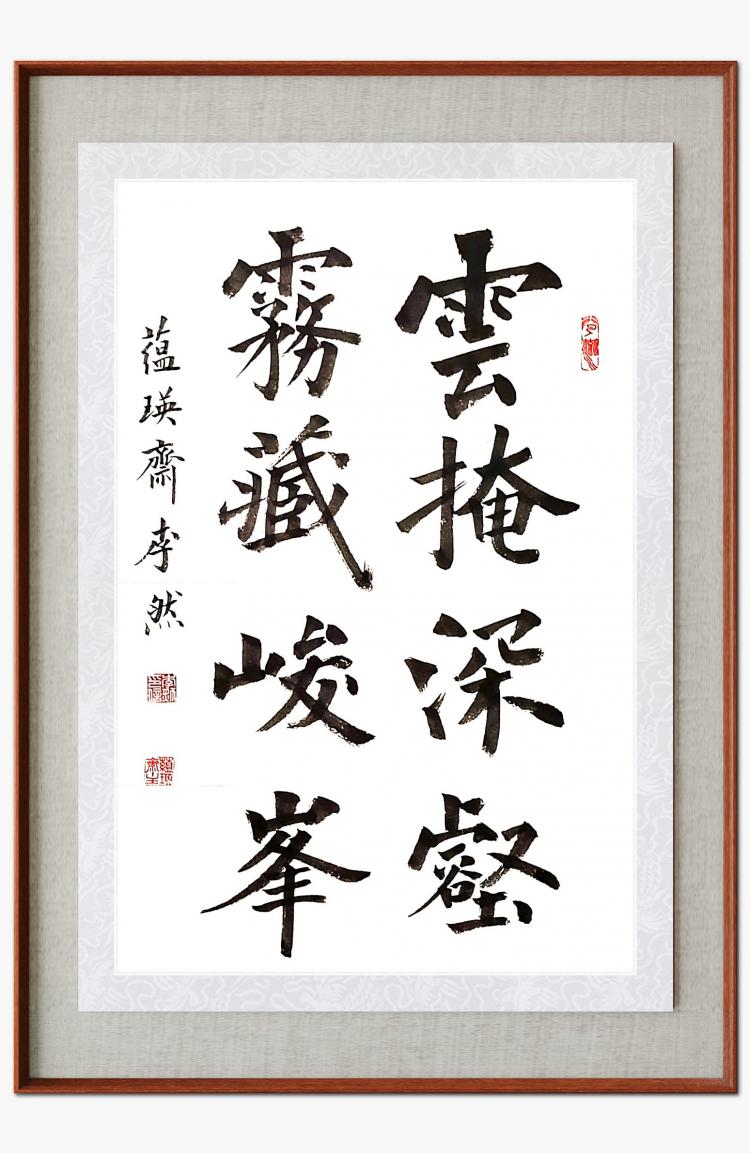 雲掩深壑
霧藏峻峯
蕴瑛齋李然